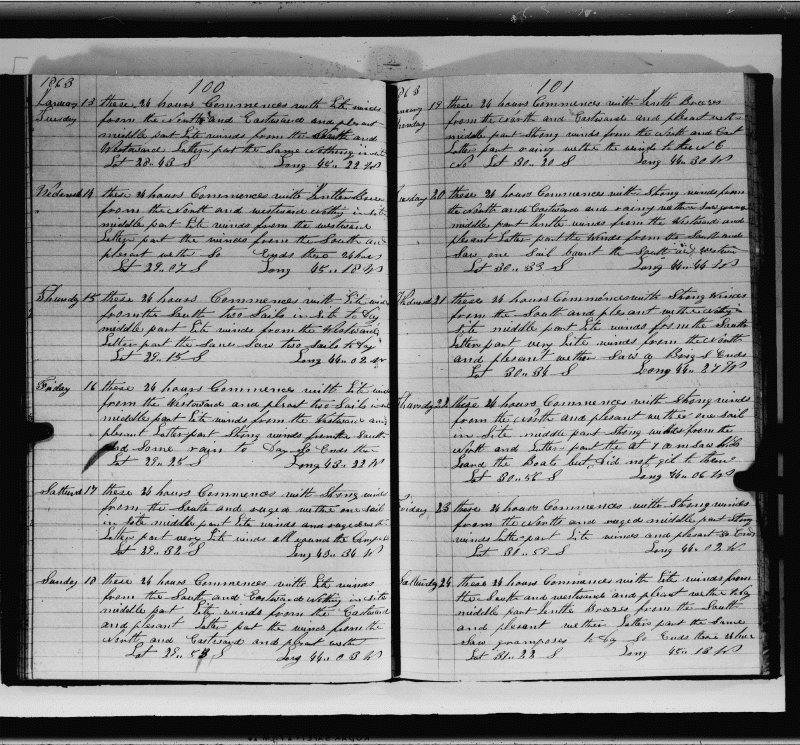 1863
100
January 13 these 24 hours Commences with Lite winds
Tuesday from the North and Eastward and pleasant
middle part Lite winds from the South and
Westward Latter part the Same Nothing in site
Lat 28..43 S Long 45.. 22 W
Wedensd 14 these 24 hours Commences with
from the North and westward nothing in site
middle part Lite winds from the westward
Latter part the winds from the South and
pleasant wether So Ends these 24 hours
Lat 29..07 S Long 45.. 18 W
Thursdy 15 these 24 hours Commences with Lite winds
from the South two Sails in Site to Day
middle part Lite winds from the Westward
Latter part the Same Saw two Sails to Day
Lat 29..15 S Long 44.. 02 W
Friday 16 these 24 hours Commences with Lite winds
from the Westward and plesant two Sails in
middle part Lite winds from the Westward and
plesant Latter part Strong winds from the South
and Some rain to Day So Ends these
Lat 29..25 S Long 43.. 22 W
Satturd 17 these 24 hours Commences with Strong winds
from the South and ruged wether one sail
in Site middle part Lite winds and ruged
Latter part very Lite winds all round the Compas
Lat 29..32 S Long 43.. 34 W
Sunday 18 these 24 hours Commences with Lite winds
from the South and Eastward Nothing in Site
middle part Lite winds from the Eastward
and plesant Latter part the winds from the
North and Eastward and plesant wether
Lat 29..53 S Long 44.. 03 W
101
19 these 24 hours Commences with
from the North and Eastward and plesant weth
middle part Strong winds from the North and East
Latter part rainy wether the winds to the N E
Lat 30..20 S Long 44.. 30 W
20 these 24 hours Commences with Strong winds from
the North and Eastward and rainy wether
middle part winds from the Westward and
plesant Latter part the Winds from the South and
Saw one Sail bound the South and Western
Lat 30..33 S Long 44.. 44 W
21 these 24 hours Commences with Strong Winds
from the South and plesant wether
Site middle part Lite winds from the South
Latter part very Lite winds from the North
and plesant wether Saw a Barq So Ends
Lat 30..34 S Long 44.. 27 W
Thursday 22 these 24 hours Commences with Strong winds
from the North and plesant wether one sail
in Site middle part Strong winds from the
North and Latter part the at 7 am Saw
and the Boats but did not git to them
Lat 30..56 S Long 44.. 06 W
Friday 23 these 24 hours Commences with Strong winds
from the North and ruged middle part Strong
winds latter part Lite winds and plesant So Ends
Lat 31..59 S Long 44.. 02 W
Satturdy 24 these 24 hours Commences with Lite winds from
the South and westward and plesant wether to Day
middle part from the South
and plesant wether Latter part the Same
Saw grampuses to Day So Ends these 24 hours
Lat 31..22 S Long 45.. 18 W